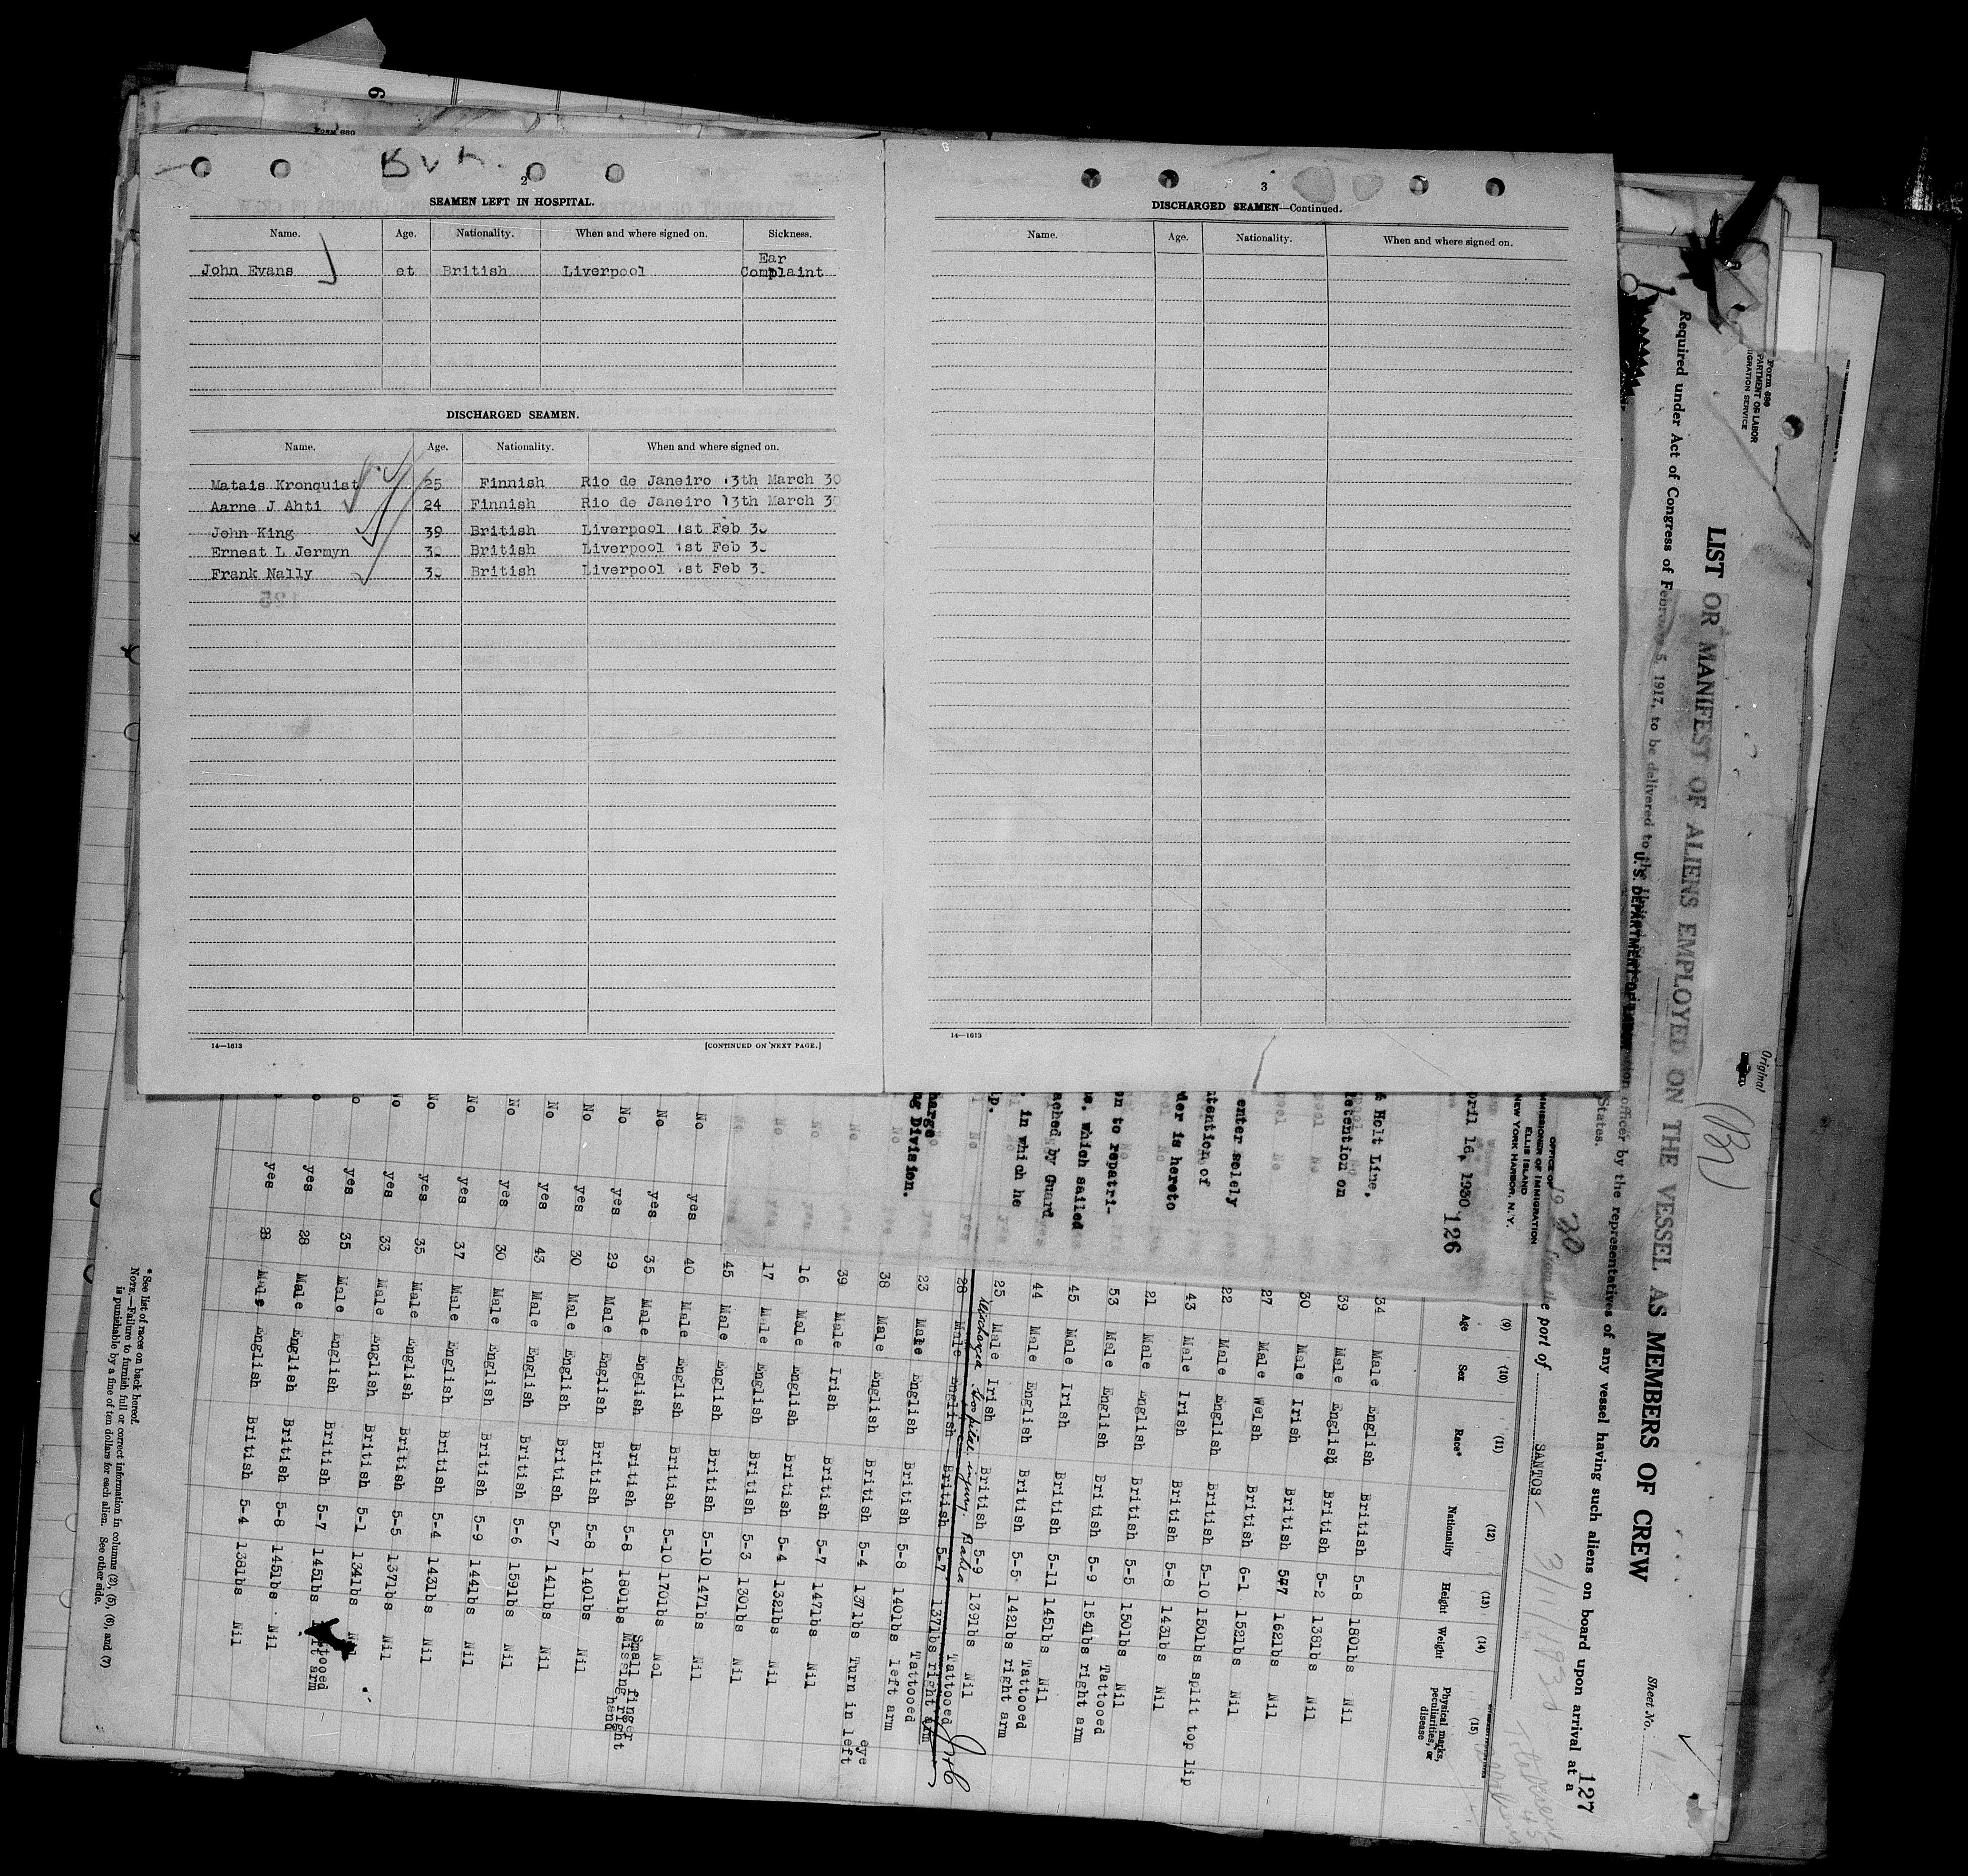 6
FORM 680
2
SEAMEN LEFT IN HOSPITAL.
Name. Age. Nationality. When and where signed on. Sickness.
John Evans et British Liverpool Ear Complaint
DISCHARGED SEAMEN.
Name. Age. Nationality. When and where signed on.
Matais Kronquist 25 Finnish Rio de Janeiro 13th March 30
Aarne J Ahti 24 Finnish Rio de Janeiro 13th March 30
John King 39 British Liverpool 1st Feb 30
Ernest L Jermyn 30 British Liverpool 1st Feb 30
Frank Nally 30 British Liverpool 1st Feb 30
125
14—1613 [CONTINUED ON NEXT PAGE.]
3
DISCHARGED SEAMEN—Continued.
Name. Age. Nationality. When and where signed on.
14—1613
Original
Form 689
PARTMENT OF LABOR
IGRATION SERVICE
Sheet No. 1
127
LIST OR MANIFEST OF ALIENS EMPLOYED ON THE VESSEL AS MEMBERS OF CREW
Required under Act of Congress of February 5, 1917, to be delivered to the officer by the representatives of any vessel having such aliens on board upon arrival at a
States.
U. S. DEPARTMENT OF LABOR
OFFICE OF
MMISSIONER OF IMMIGRATION
ELLIS ISLAND
NEW YORK HARBOR, N. Y.
1930 from the port of SANTOS
pril 16, 1930
126
& Holt Line,
detention on
enter solely
tention of
der is hereto
on to repatri-
s. which sailed
ached by Guard
in which he
p.
harge
ng Division.
(9) (10) (11) (12) (13) (14) (15)
Age Sex Race* Nationality Height Weight Physical marks, peculiarities, or disease
34 Male English British 5-8 180lbs Nil
39 Male English British 5-2 138lbs Nil
30 Male Irish British 5-7 162lbs Nil
27 Male Welsh British 6-1 152lbs Nil
22 Male English British 5-10 150lbs split top lip
43 Male Irish British 5-8 143lbs Nil
21 Male English British 5-5 150lbs Nil
53 Male English British 5-9 154lbs Tattooed right arm
45 Male Irish British 5-11 145lbs Nil
44 Male English British 5-5 142lbs Tattooed right arm
25 Male Irish British 5-9 139lbs Nil
Discharged Hospital injury Bahia
28 Male English British 5-7 137lbs Tattooed right arm
23 Male English British 5-8 140lbs Tattooed left arm
38 Male English British 5-4 137lbs Turn in left eye
39 Male Irish British 5-7 147lbs Nil
16 Male English British 5-4 132lbs Nil
17 Male English British 5-3 130lbs Nil
45 Male English British 5-10 147lbs Nil
No yes 40 Male English British 5-10 170lbs Nol
No yes 35 Male English British 5-8 180lbs Small finger Missing right hand
No yes 29 Male English British 5-8 140lbs Nil
No yes 30 Male English British 5-7 141lbs Nil
No yes 43 Male English British 5-6 159lbs Nil
No yes 30 Male English British 5-9 144lbs Nil
No yes 37 Male English British 5-4 143lbs Nil
No yes 35 Male English British 5-5 137lbs Nil
yes 33 Male English British 5-1 134lbs Nil
yes 35 Male English British 5-7 145lbs arm
yes 28 Male English British 5-8 145lbs Nil
yes 28 Male English British 5-4 138lbs Nil
* See list of races on back hereof.
NOTE.—Failure to furnish full or correct information in columns (2), (5), (6), and (7)
is punishable by a fine of ten dollars for each alien. See other side.